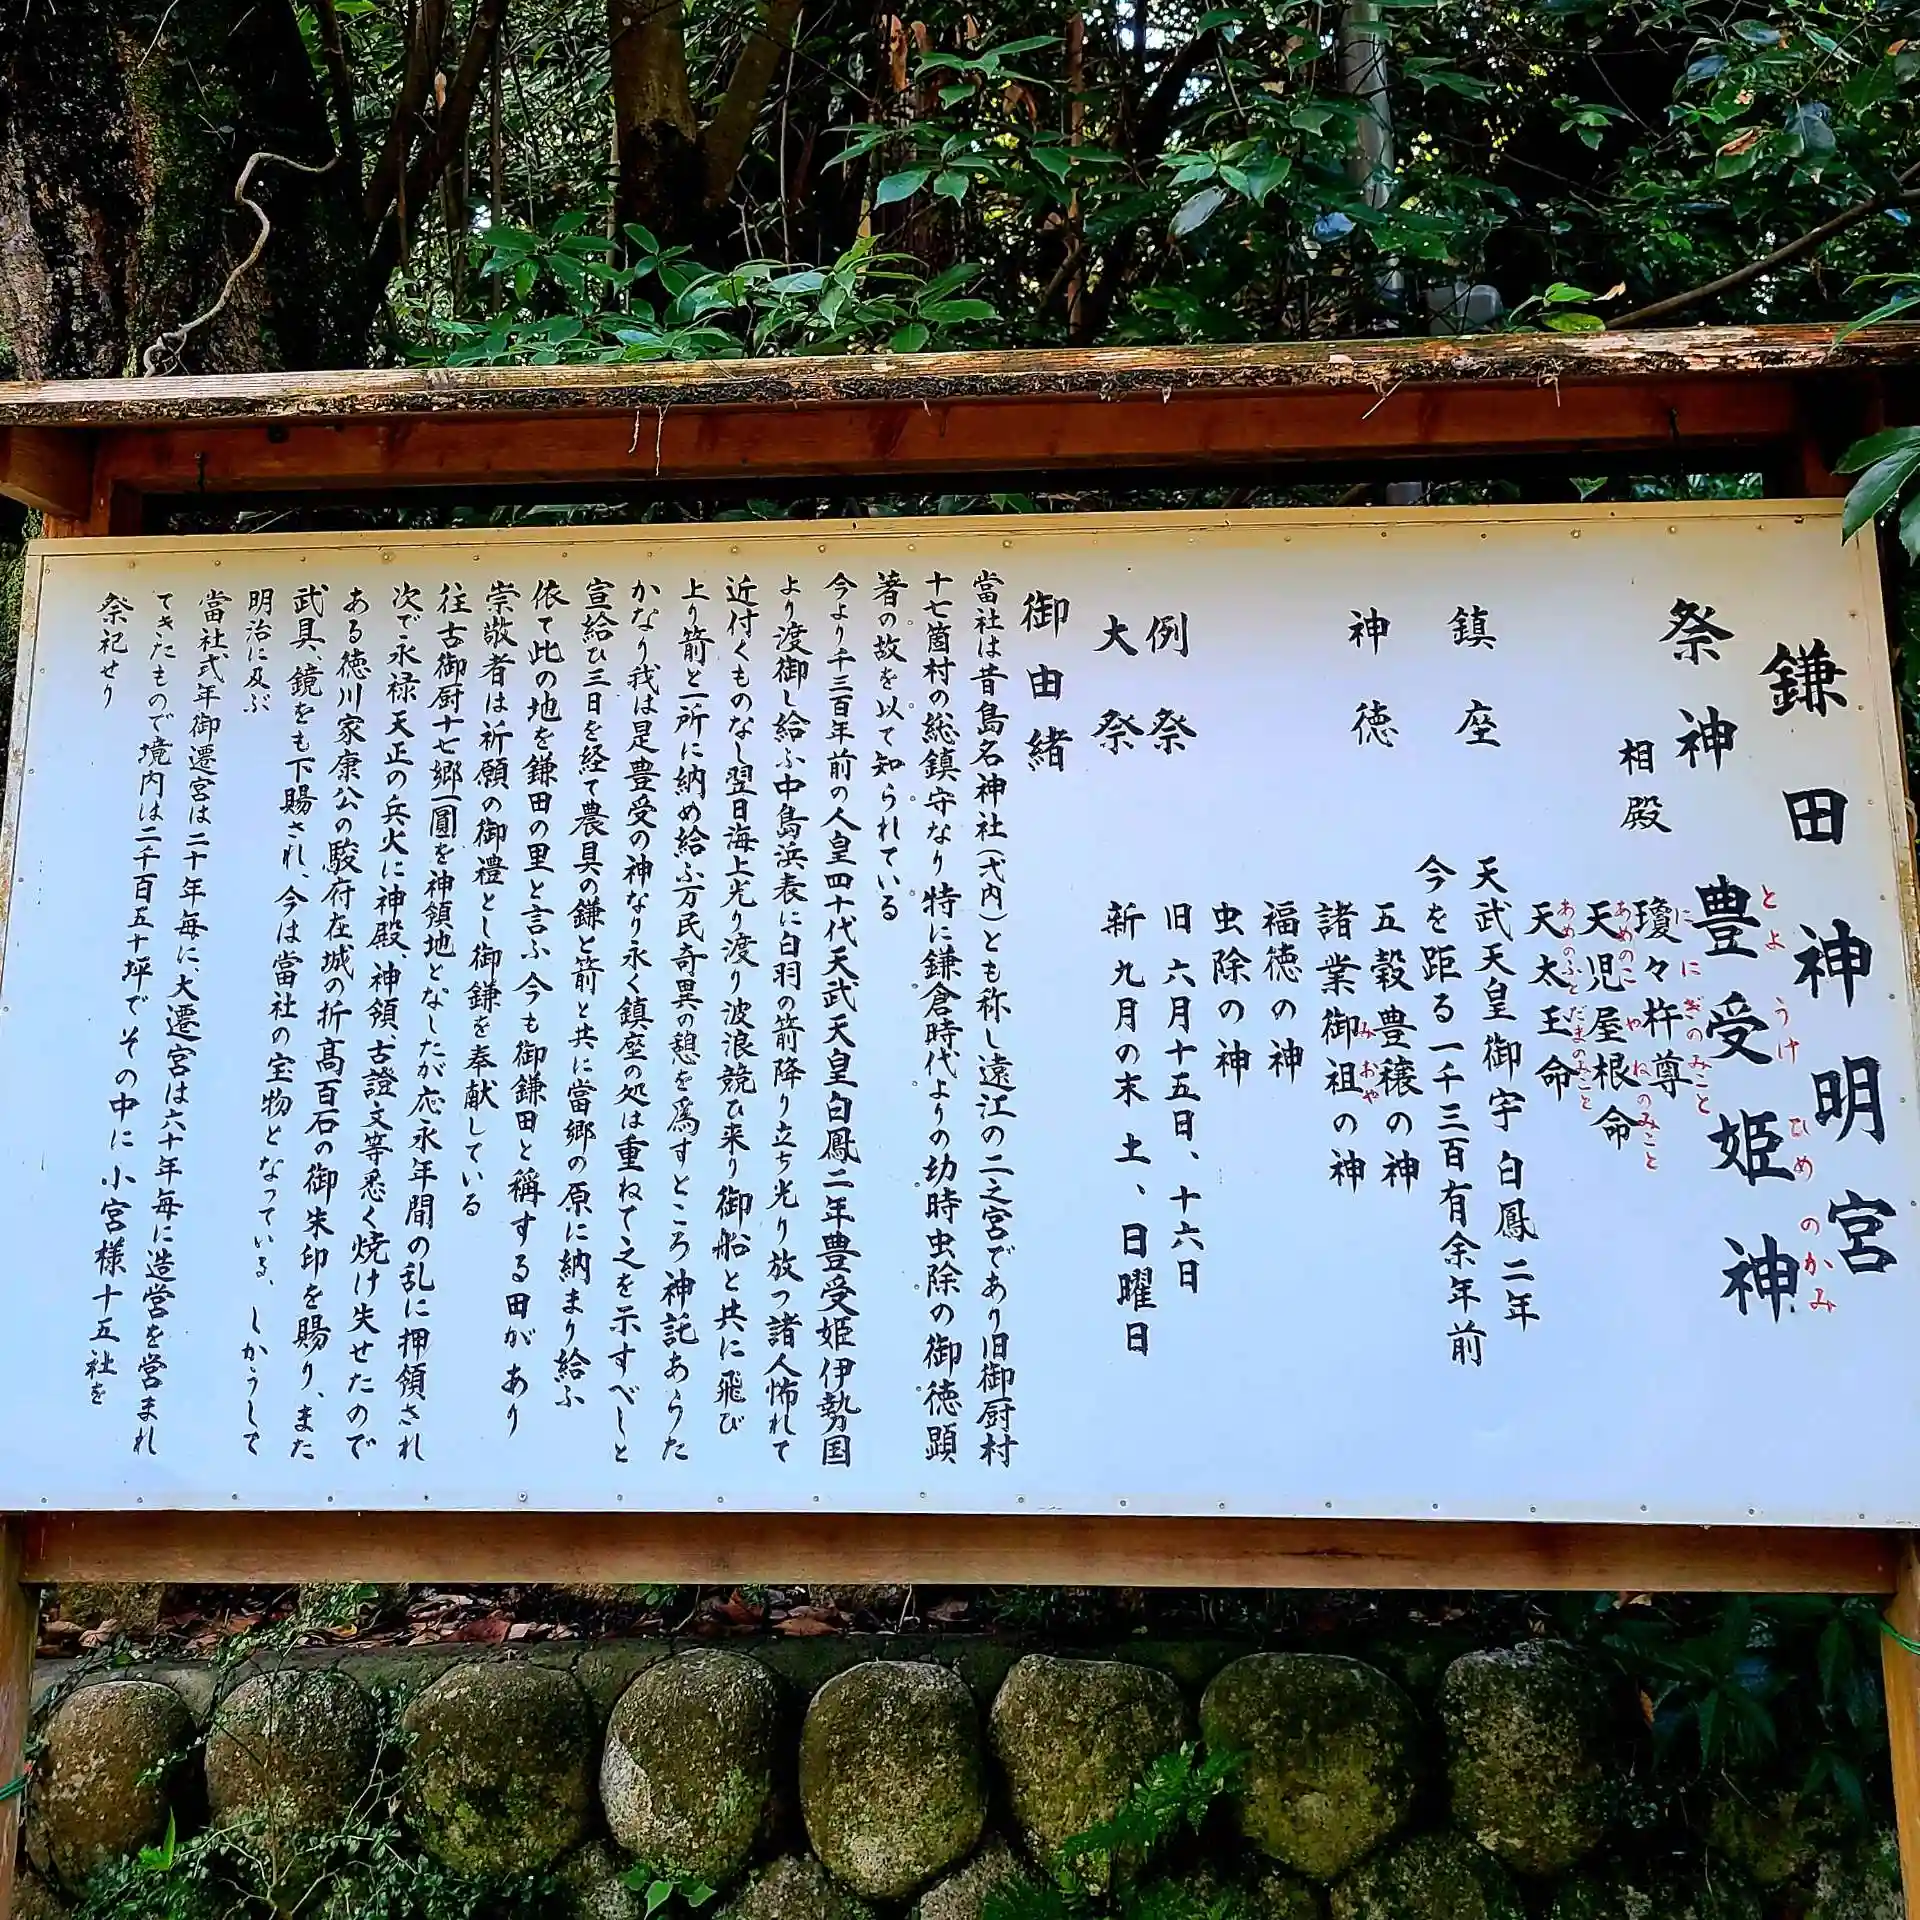 鎌田神明宮
祭神 豊受姫神
とようけひめのかみ
相殿 瓊々杵尊
ににぎのみこと
天児屋根命
あめのこやねのみこと
天太玉命
あめのふとだまのみこと
鎮座 天武天皇御宇白鳳二年
今を距る一千三百有余年前
神徳 五穀豊穣の神
諸業御祖の神
みおや
福徳の神
虫除の神
例祭 旧六月十五日、十六日
大祭 新九月の末土、日曜日
御由緒
當社は昔島名神社(式内)とも称し遠江の二之宮であり旧御厨村
十七箇村の総鎮守なり特に鎌倉時代よりの幼時虫除の御徳顕
著の故を以て知られている
今より千三百年前の人皇四十代天武天皇白鳳二年豊受姫伊勢国
より渡御し給ふ中島浜表に白羽の箭降り立ち光り放つ諸人怖れて
近付くものなし翌日海上光り渡り波浪競ひ来り御船と共に飛び
上り箭と一所に納め給ふ万民奇異の憩を爲すところ神託あらた
かなり我は是豊受の神なり永く鎮座の処は重ねて之を示すべしと
宣給ひ三日を経て農具の鎌と箭と共に當郷の原に納まり給ふ
依て此の地を鎌田の里と言ふ今も御鎌田と稱する田があり
崇敬者は祈願の御禮とし御鎌を奉献している
往古御厨十七郷一圓を神領地となしたが応永年間の乱に押領され
次で永禄天正の兵火に神殿、神領、古證文等悉く焼け失せたので
ある徳川家康公の駿府在城の折高百石の御朱印を賜り、また
武具、鏡をも下賜され、今は當社の宝物となっている、しかうして
明治に及ぶ
當社式年御遷宮は二十年毎に、大遷宮は六十年毎に造営を営まれ
てきたもので境内は二千百五十坪でその中に小宮様十五社を
祭祀せり